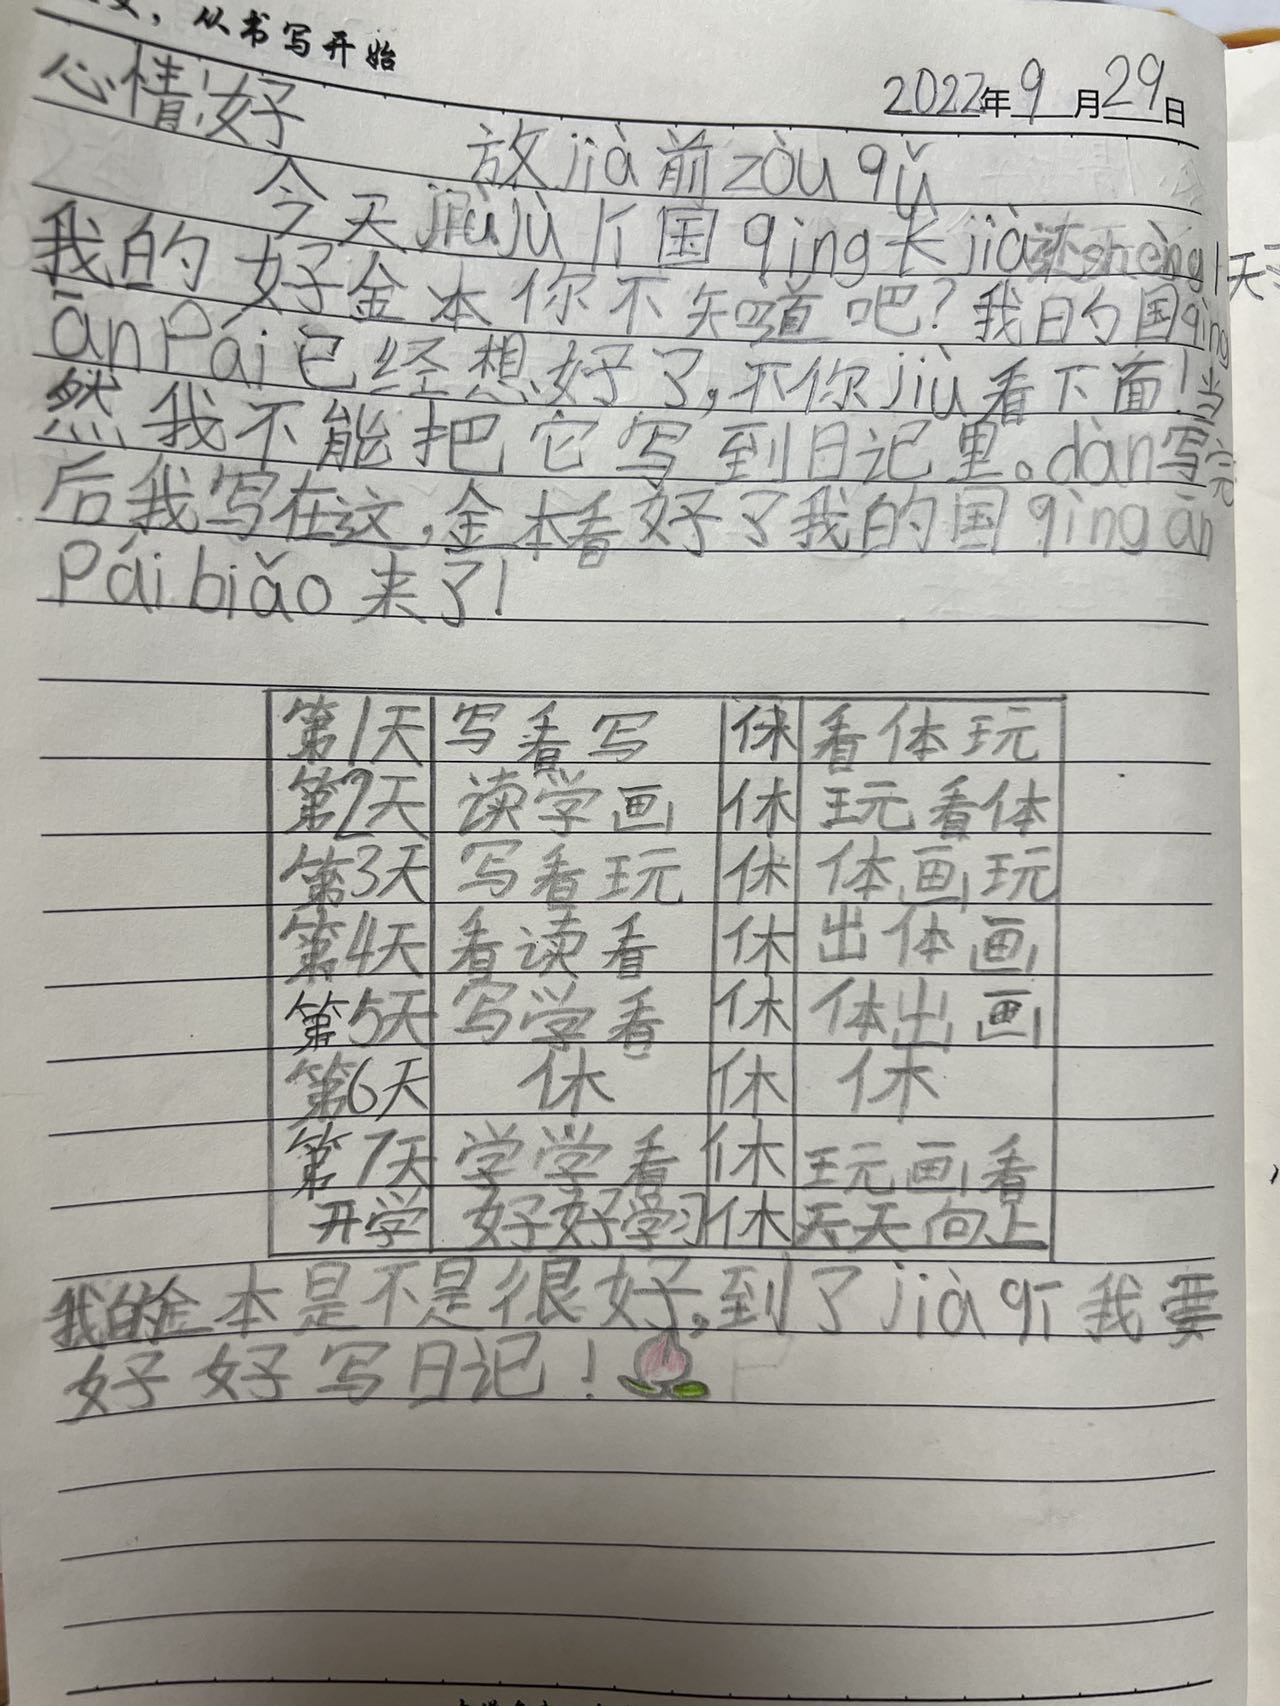 ，从书写开始
2022年9月29日
心情:好
放jià前zòu qǔ
今天jiùjù个国qìng长jià还shèng1天
我的好金本你不知道吧？我的国qìng
ānPái已经想好了，不你jiù看下面！当
然我不能把它写到日记里。dàn写完
后我写在这，金本看好了我的国qìng ān
Pái biǎo来了！
第1天 写看写 休 看体玩
第2天 读学画 休 玩看体
第3天 写看玩 休 体画玩
第4天 看读看 休 出体画
第5天 写学看 休 体出画
第6天 休 休 休
第7天 学学看 休 玩画看
开学 好好学习 休 天天向上
我的金本是不是很好，到了jià qī我要
好好写日记！